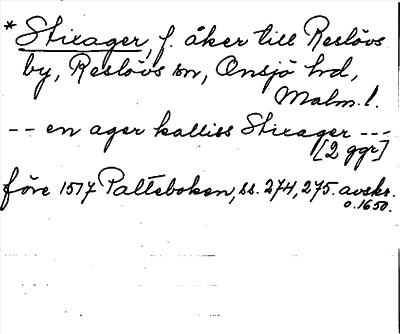 *Stixager, f. åker till Reslövs
by, Reslövs sn, Onsjö hd,
Malm. l.
-- en ager kalliss Stixager ---
[2 ggr]
före 1517 Palteboken, ss. 274, 275. avskr.
o. 1650.